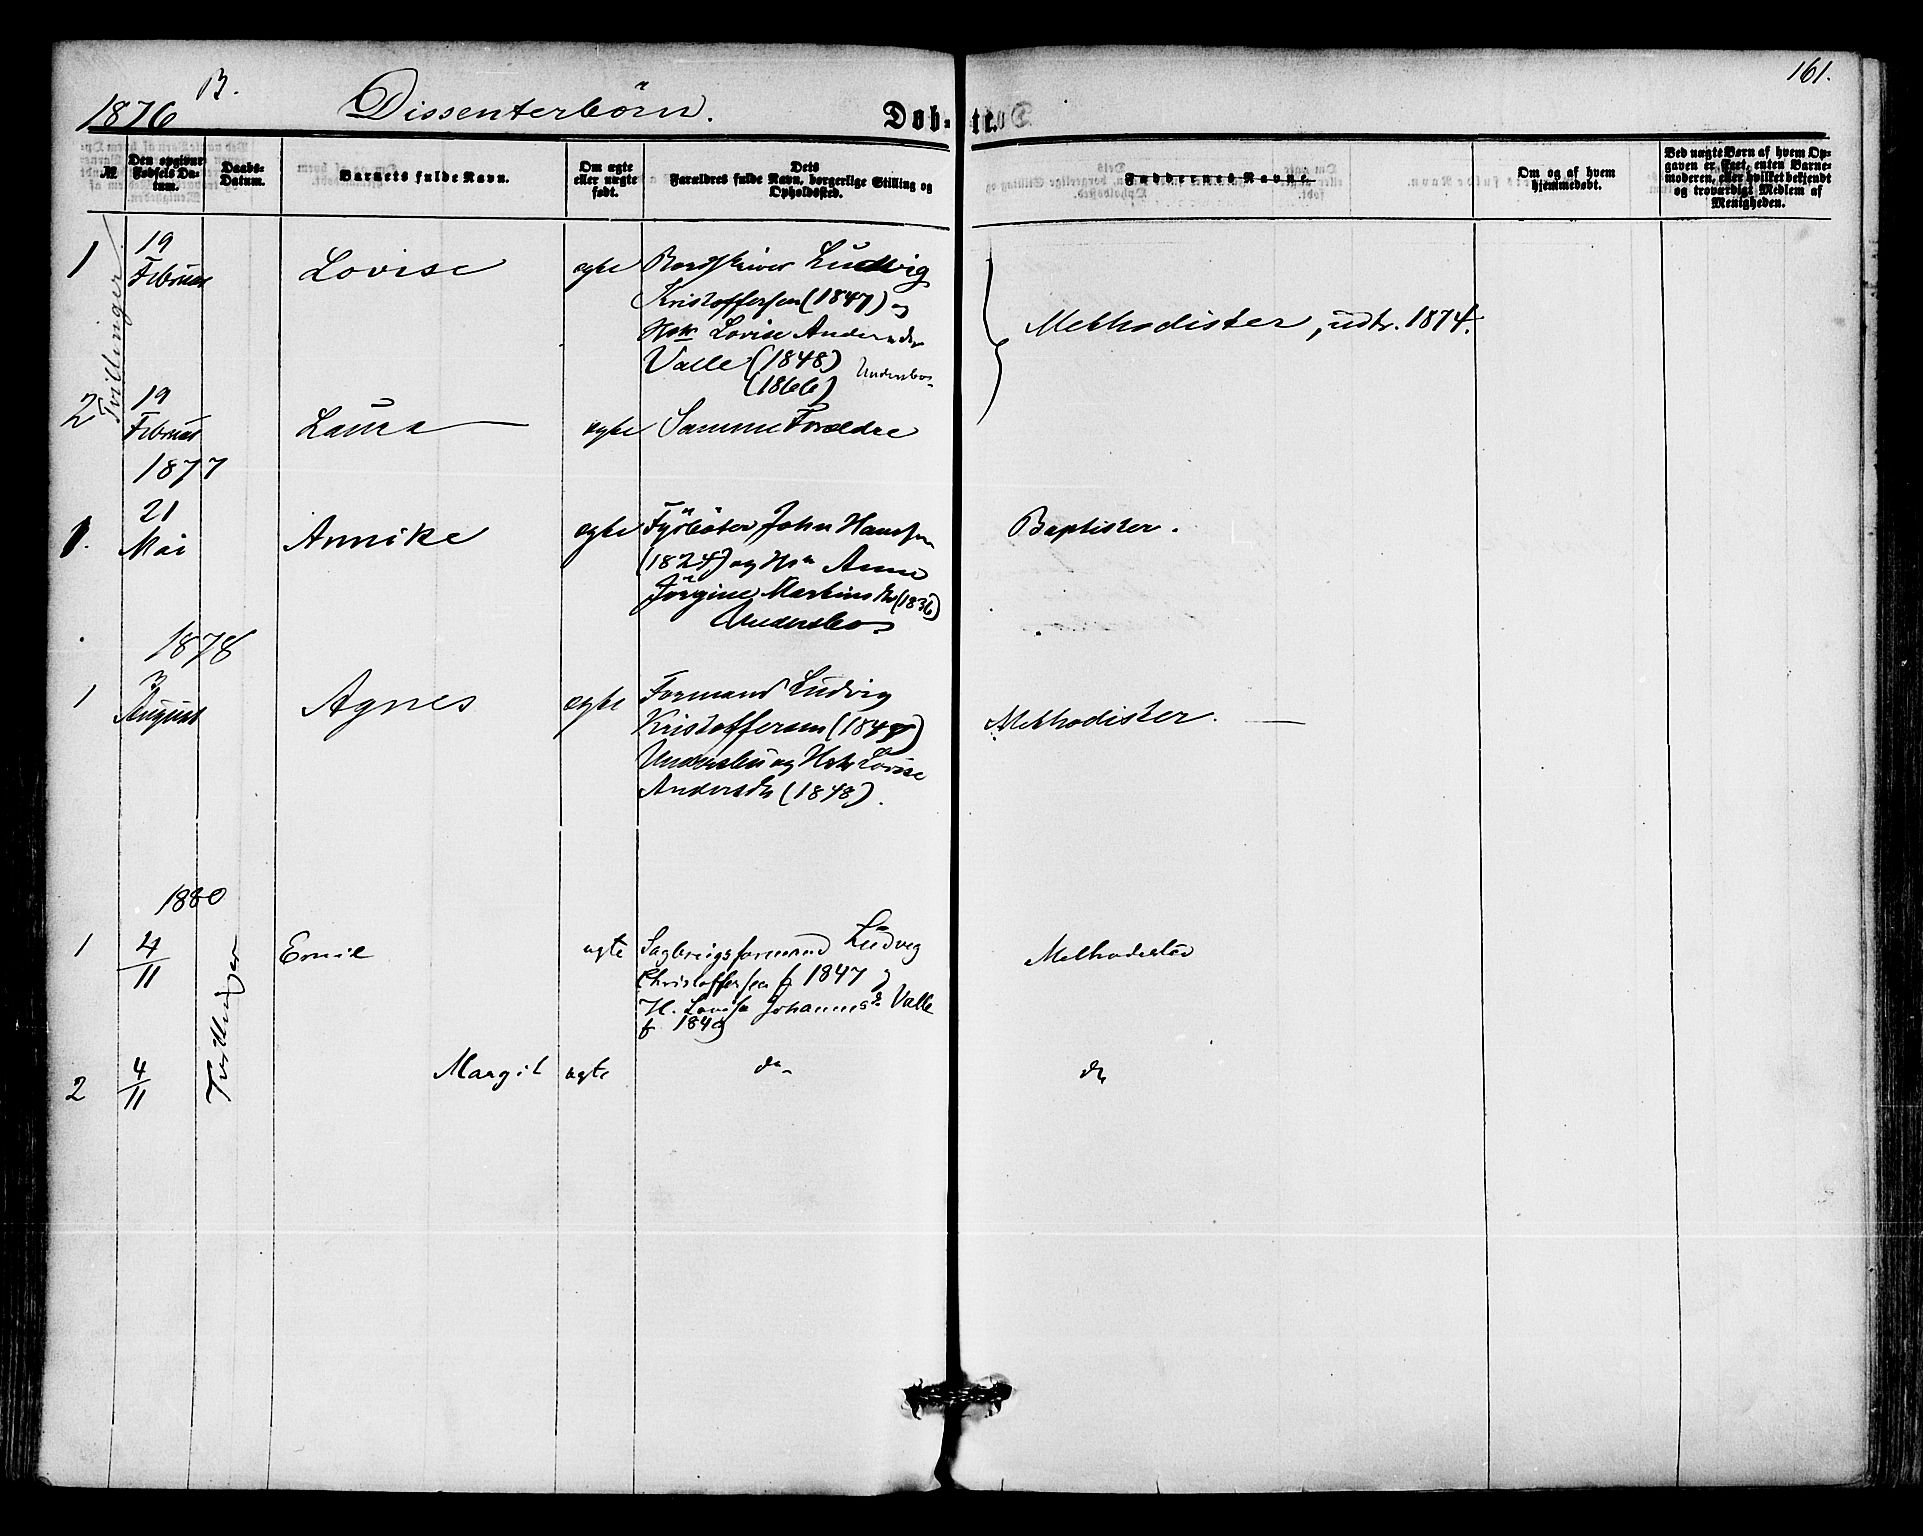 1876 B. Dissenterbörn. Døb- te. 161.
№
Den opgivne Fødsels Datum.
Daabs-Datum.
Barnets fulde Navn.
Om ægte eller uægte født.
Dets Forældres fulde Navn, borgerlige Stilling og Opholdssted.
Faddernes Navne.
Om og af hvem hjemmedøbt.
Ved uægte Børn af hvem Opgaven er skeet, enten Barnemoderen, eller hvilket bekjendt og troværdigt Medlem af Menigheden.
Tvillinger
1 19 Februar Lovise ægte Ludvig
Kristoffersen (1847) og
Hstr Lovise Andersdtr
Valle (1848)
(1866)
Methodister, udtr. 1874.
2 19 Februar Laura ægte Samme Forældre
1877
1. 21 Mai Annike ægte Fyrböter John Hanssen
(1824) og Hstr Anne
Jörgine Martinsdtr (1836)
Baptister.
1878
1 3 August Agnes ægte Formand Ludvig
Kristoffersen (1847)
og Hstr Lovise
Andersdtr (1848).
Methodister.
1880
Tvillinger
1 4/11 Emil ægte Sagbrugsformand Ludvig
Christoffersen f. 1847 og
H. Lovise Johannesd. Valle
f. 1849
Methodister
2 4/11 Margit ægte do do